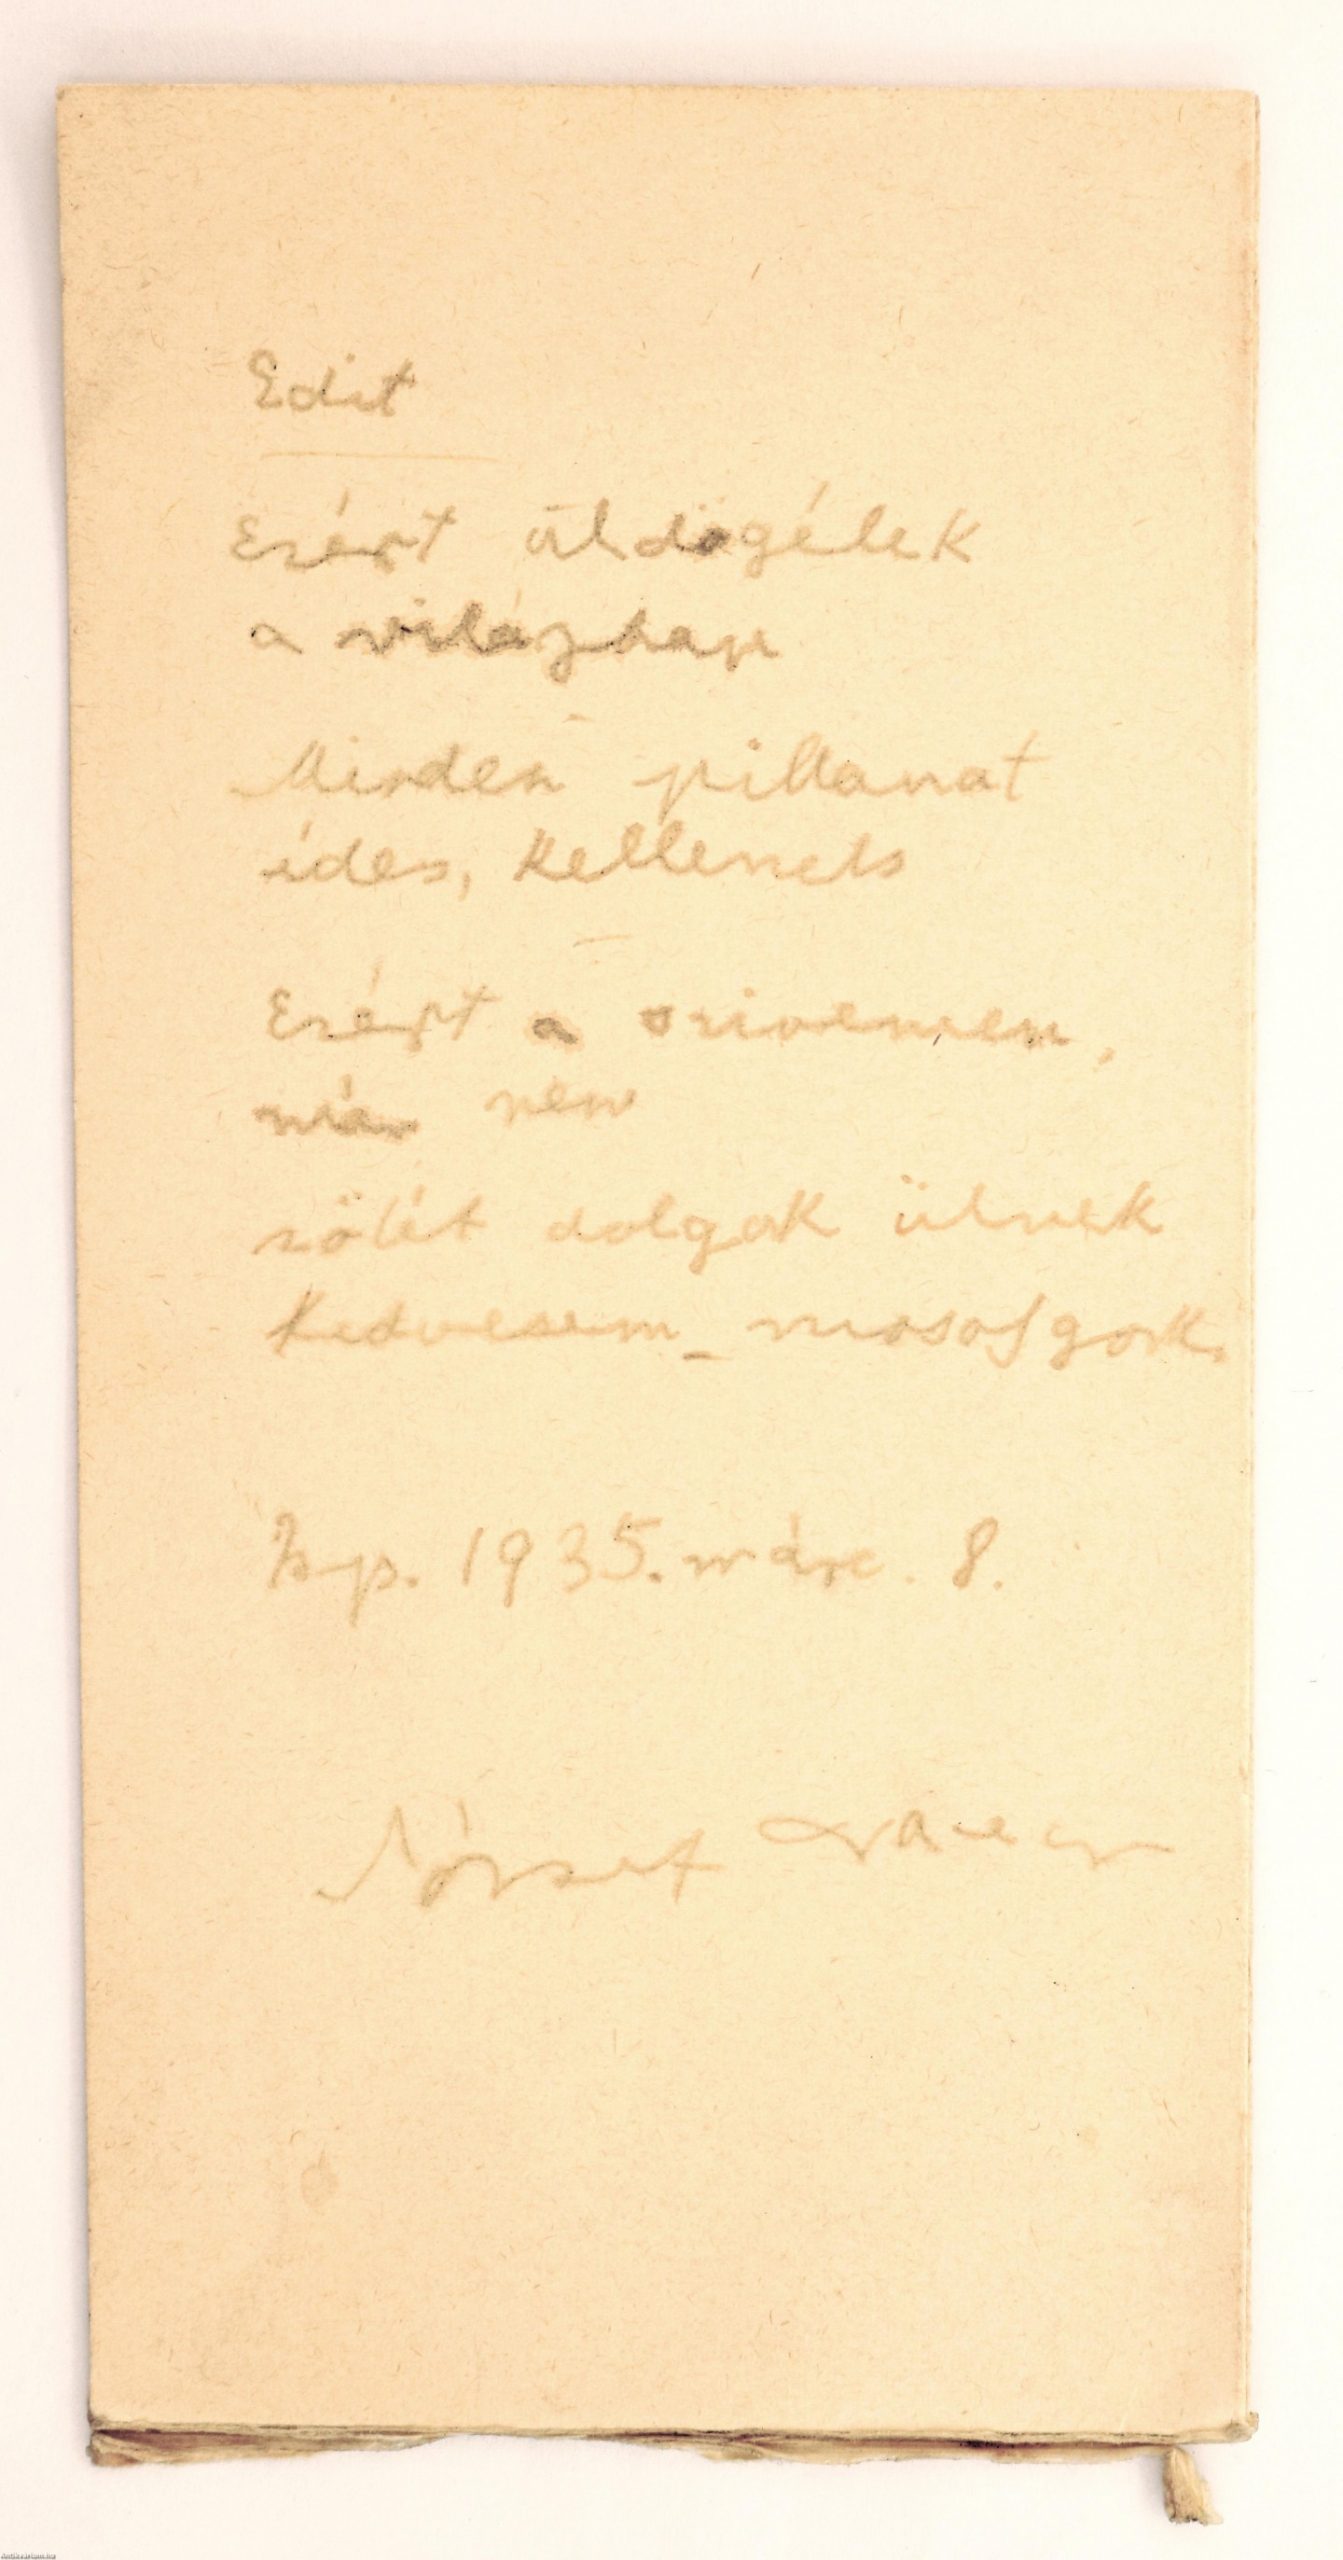 Edit
Ezért üldögélek
a világban
Minden pillanat
édes, kellenels
Ezért a szivemen,
már nem
sötét dolgok ülnek
Kedvesem_ mosolygok.
Bp. 1935. márc. 8.
József
Antikvarium.hu